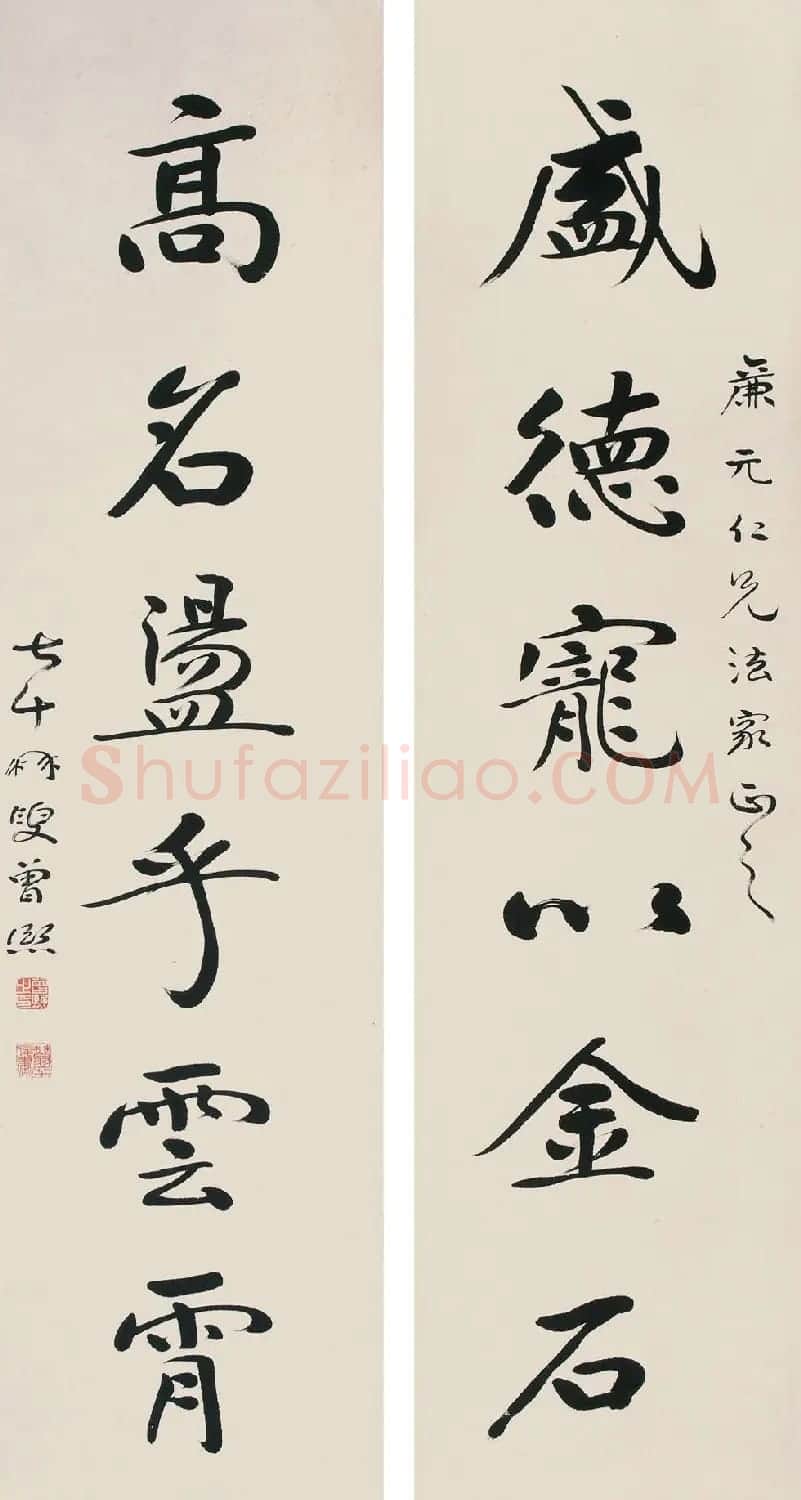 廉元仁兄法家正之
盛德寵以金石
高名盪乎雲霄
七十髯叟曾熙
Shufaziliao.COM